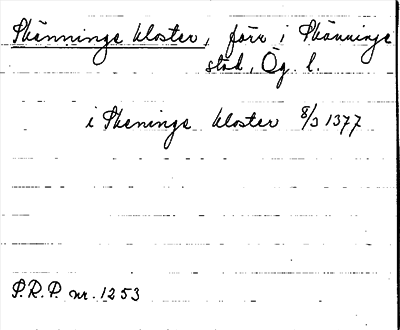 Skännings kloster, förr i Skännings
stad, Ög. l.
i Skenings kloster 8/3 1377
S.R.P. nr. 1253